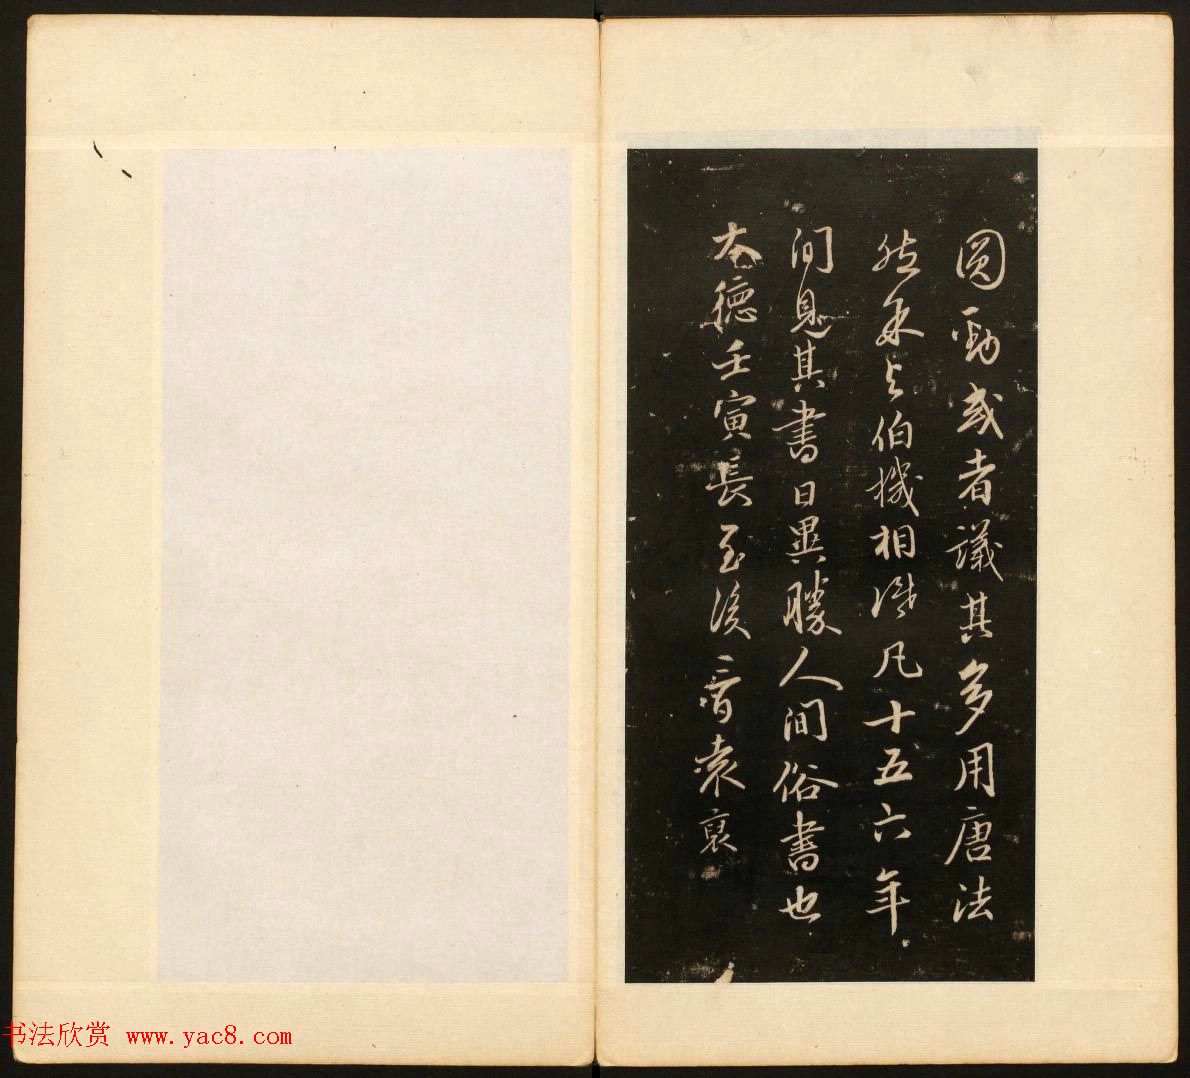 圓勁或者議其多用唐法
然余與伯機相識凡十五六年
間見其書日異勝人間俗書也
大德壬寅長至後一日晉袁裒
书法欣赏 www.yac8.com